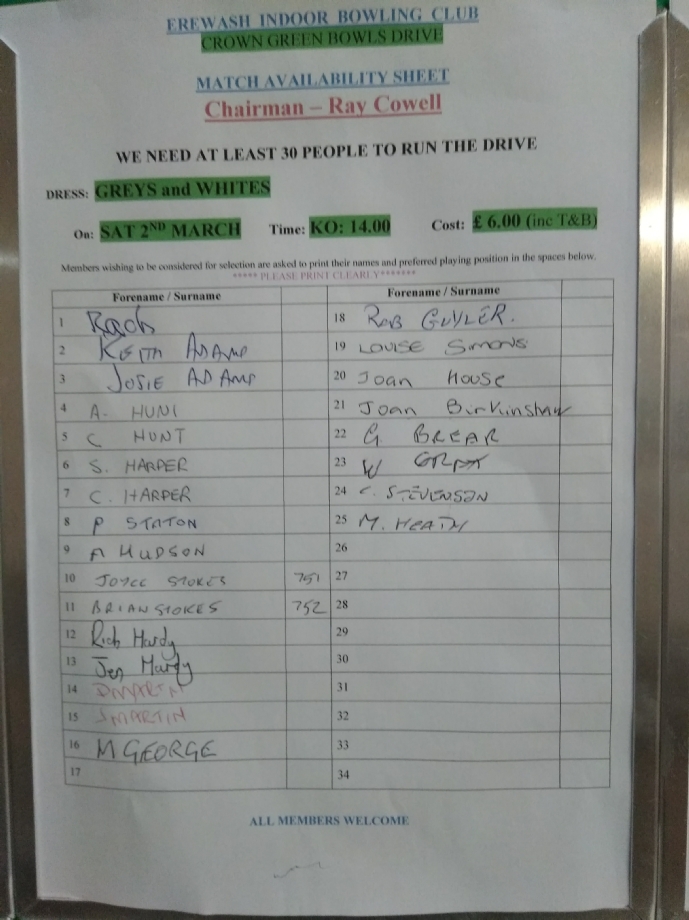 EREWASH INDOOR BOWLING CLUB
CROWN GREEN BOWLS DRIVE
MATCH AVAILABILITY SHEET
Chairman – Ray Cowell
WE NEED AT LEAST 30 PEOPLE TO RUN THE DRIVE
DRESS: GREYS and WHITES
On: SAT 2ND MARCH Time: KO: 14.00 Cost: £ 6.00 (inc T&B)
Members wishing to be considered for selection are asked to print their names and preferred playing position in the spaces below.
***** PLEASE PRINT CLEARLY*******
Forename / Surname
1
2 KEITH ADAMS
3 JOSIE ADAMS
4 A. HUNT
5 C HUNT
6 S. HARPER
7 C. HARPER
8 P STATON
9 A HUDSON
10 JOYCE STOKES 751
11 BRIAN STOKES 752
12 Rich Hardy
13 Jen Hardy
14 D MARTIN
15 J MARTIN
16 M GEORGE
17
Forename / Surname
18 ROB GUYLER.
19 LOUISE SIMONS
20 Joan House
21 Joan Birkinshaw
22 G BREAR
23 W
24 C. STEVENSON
25 M. HEATH
26
27
28
29
30
31
32
33
34
ALL MEMBERS WELCOME